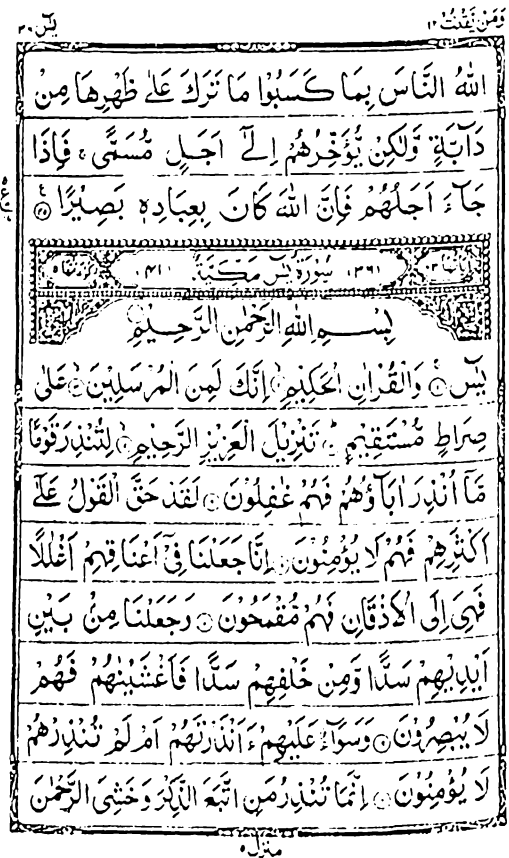 وَمَنْ يَّقْنُتْ ٢٢
يٰسٓ ٣٦
اللّٰهُ النَّاسَ بِمَا كَسَبُوْا مَا تَرَكَ عَلٰى ظَهْرِهَا مِنْ
دَآبَّةٍ وَّلٰكِنْ يُّؤَخِّرُهُمْ اِلٰٓى اَجَلٍ مُّسَمًّى ۚ فَاِذَا
جَآءَ اَجَلُهُمْ فَاِنَّ اللّٰهَ كَانَ بِعِبَادِهٖ بَصِيْرًا ۝٤٥
سُوْرَةُ يٰسٓ مَكِّيَّةٌ
بِسْمِ اللّٰهِ الرَّحْمٰنِ الرَّحِيْمِ
يٰسٓ ۝ وَالْقُرْاٰنِ الْحَكِيْمِ ۝ اِنَّكَ لَمِنَ الْمُرْسَلِيْنَ ۝ عَلٰى
صِرَاطٍ مُّسْتَقِيْمٍ ۝ تَنْزِيْلَ الْعَزِيْزِ الرَّحِيْمِ ۝ لِتُنْذِرَ قَوْمًا
مَّآ اُنْذِرَ اٰبَآؤُهُمْ فَهُمْ غٰفِلُوْنَ ۝ لَقَدْ حَقَّ الْقَوْلُ عَلٰٓى
اَكْثَرِهِمْ فَهُمْ لَا يُؤْمِنُوْنَ ۝ اِنَّا جَعَلْنَا فِيْٓ اَعْنَاقِهِمْ اَغْلٰلًا
فَهِيَ اِلَى الْاَذْقَانِ فَهُمْ مُّقْمَحُوْنَ ۝ وَجَعَلْنَا مِنْۢ بَيْنِ
اَيْدِيْهِمْ سَدًّا وَّمِنْ خَلْفِهِمْ سَدًّا فَاَغْشَيْنٰهُمْ فَهُمْ
لَا يُبْصِرُوْنَ ۝ وَسَوَآءٌ عَلَيْهِمْ ءَاَنْذَرْتَهُمْ اَمْ لَمْ تُنْذِرْهُمْ
لَا يُؤْمِنُوْنَ ۝ اِنَّمَا تُنْذِرُ مَنِ اتَّبَعَ الذِّكْرَ وَخَشِيَ الرَّحْمٰنَ
منزل ٥